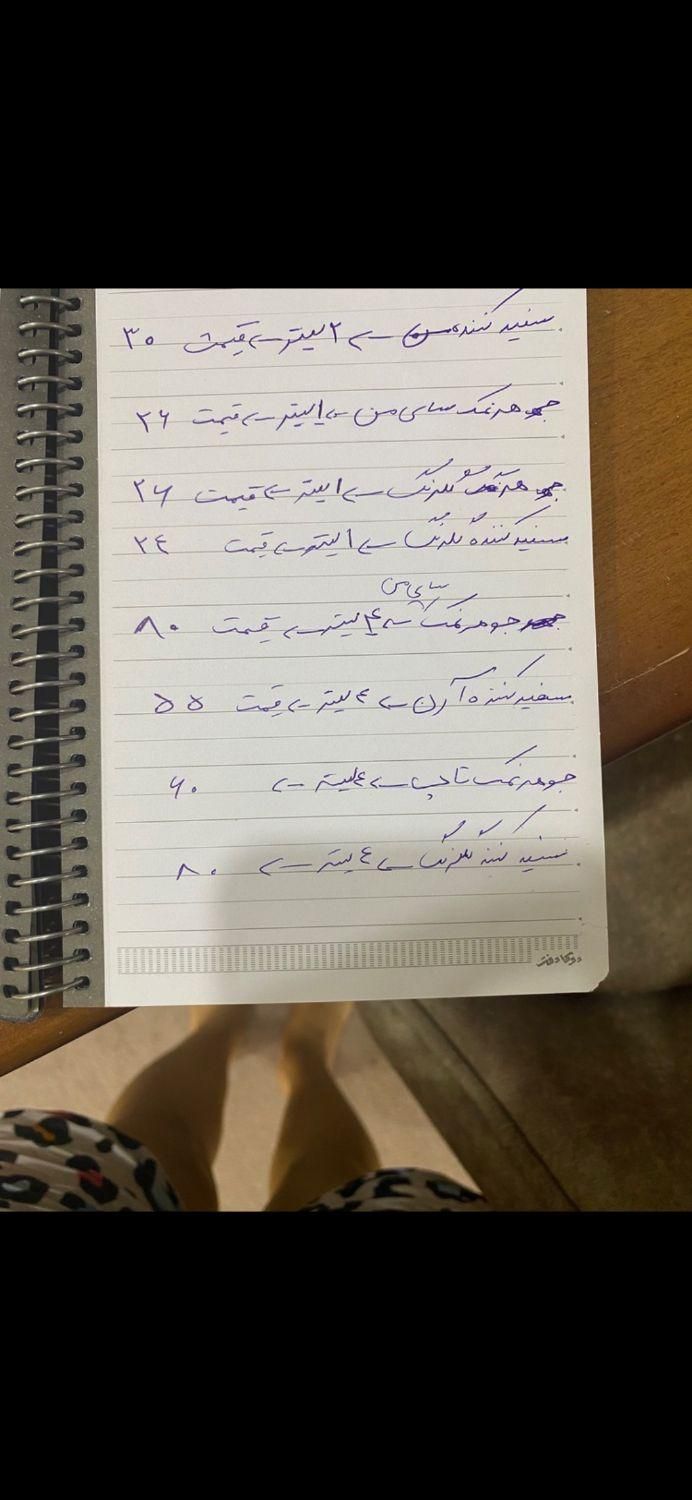 سفید کننده من ← ۲ لیتر ← قیمت ۳۰
جوهر نمک سای من ← ۱ لیتر ← قیمت ۲۶
جوهر نمک گلرنگ ← ۱ لیتر ← قیمت ۲۶
سفید کننده گلرنگ ← ۱ لیتر ← قیمت ۲۴
سای من
جوهر نمک ← ۴ لیتر ← قیمت ۸۰
سفید کننده آرن ← ۴ لیتر ← قیمت ۵۵
جوهر نمک تاپ ← ۴ لیتر ← ۶۰
سفید کننده گلرنگ ← ۴ لیتر ← ۸۰